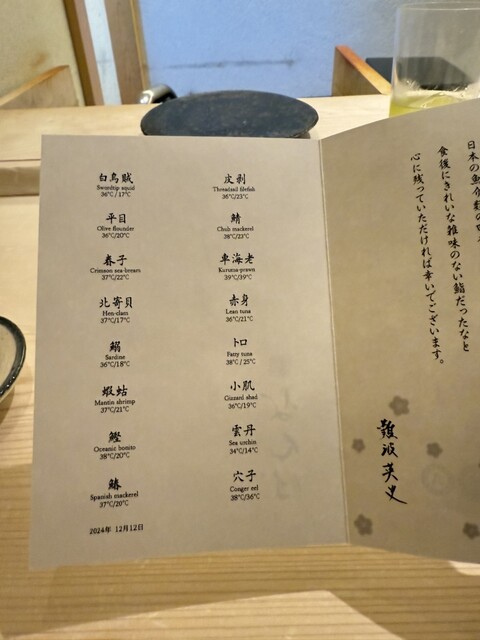 白烏賊
Swordtip squid
36℃/17℃
平目
Olive flounder
36℃/20℃
春子
Crimson sea-bream
37℃/22℃
北寄貝
Hen-clam
37℃/17℃
鰯
Sardine
36℃/18℃
蝦蛄
Mantis shrimp
37℃/21℃
鰹
Oceanic bonito
38℃/20℃
鰆
Spanish mackerel
37℃/20℃
2024年 12月12日
皮剥
Threadsail filefish
36℃/23℃
鯖
Chub mackerel
38℃/23℃
車海老
Kuruma-prawn
39℃/39℃
赤身
Lean tuna
36℃/21℃
トロ
Fatty tuna
38℃/25℃
小肌
Gizzard shad
36℃/19℃
雲丹
Sea urchin
34℃/14℃
穴子
Conger eel
38℃/36℃
日本の魚介類の
食後にきれいな雑味のない鮨だったなと
心に残っていただければ幸いでございます。
難波英史